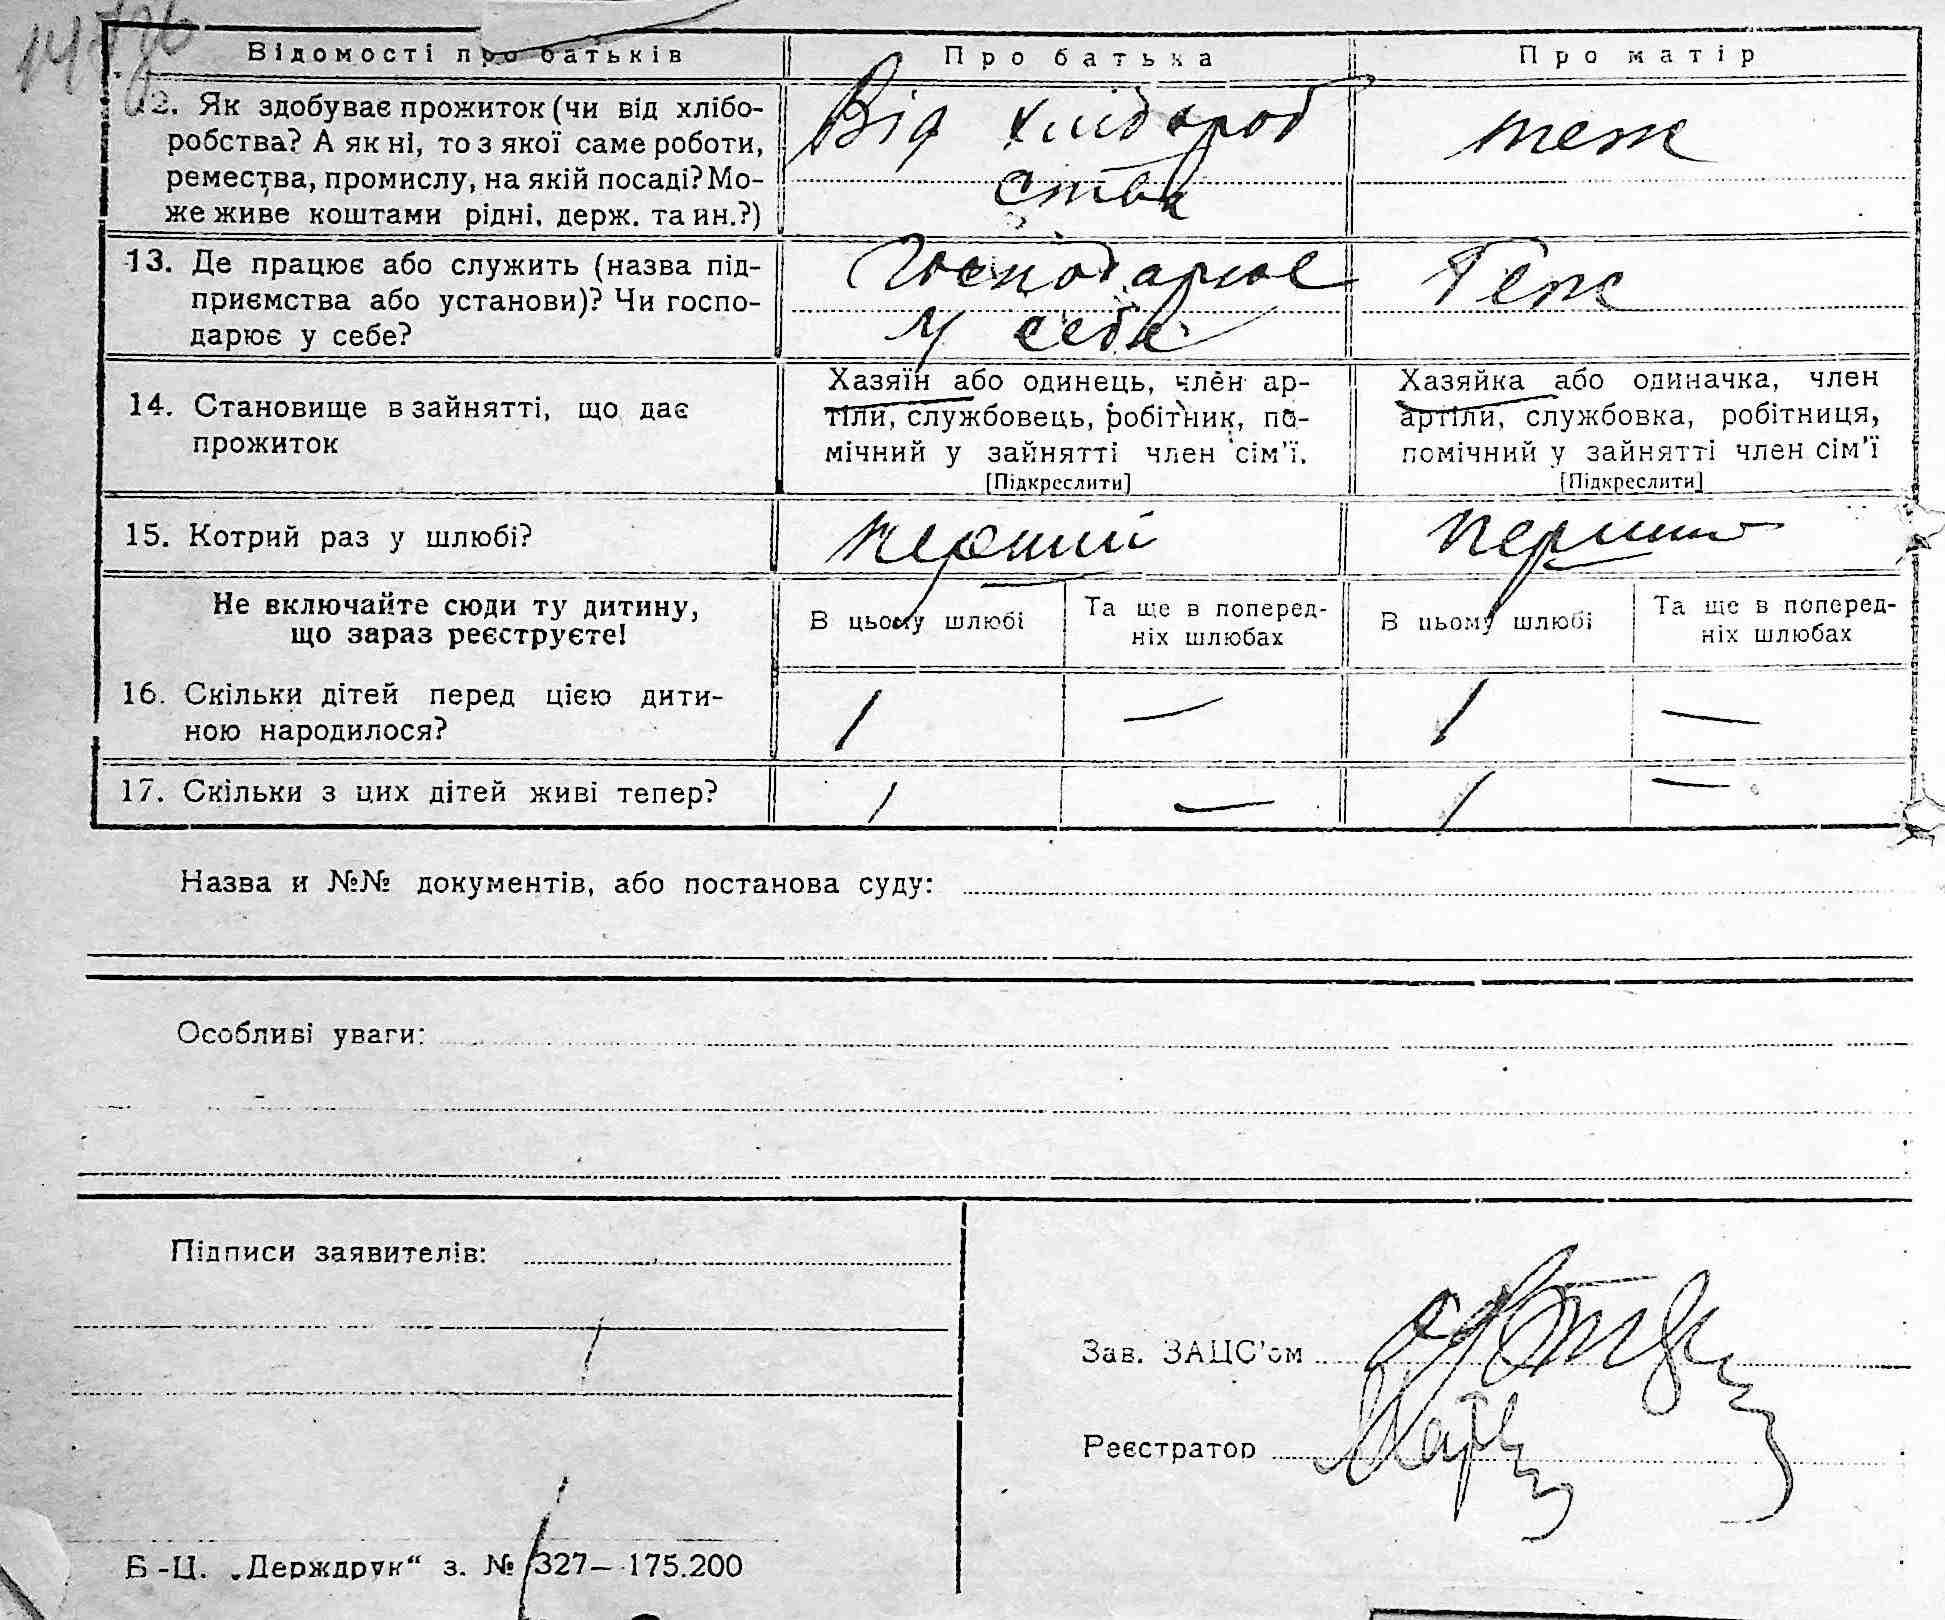 Відомості про батьків
Про батька
Про матір
12. Як здобуває прожиток (чи від хлібо-
робства? А як ні, то з якої саме роботи,
ремества, промислу, на якій посаді? Мо-
же живе коштами рідні, держ. та ин.?)
Від хлібороб
ства
теж
13. Де працює або служить (назва під-
приємства або установи)? Чи госпо-
дарює у себе?
Господарює
у себе
Теж
14. Становище в зайнятті, що дає
прожиток
Хазяїн або одинець, член ар-
тіли, службовець, робітник, по-
мічний у зайнятті член сім'ї.
[Підкреслити]
Хазяйка або одиначка, член
артіли, службовка, робітниця,
помічний у зайнятті член сім'ї
[Підкреслити]
15. Котрий раз у шлюбі?
перший
перший
Не включайте сюди ту дитину,
що зараз реєструєте!
В цьому шлюбі
Та ще в поперед-
ніх шлюбах
В цьому шлюбі
Та ще в поперед-
ніх шлюбах
16. Скільки дітей перед цією дити-
ною народилося?
1 — 1 —
17. Скільки з цих дітей живі тепер?
1 — 1 —
Назва и №№ документів, або постанова суду:
Особливі уваги:
Підписи заявителів:
Зав. ЗАЦС'ом
Реєстратор
Б-Ц. „Держдрук“ з. № 327— 175.200